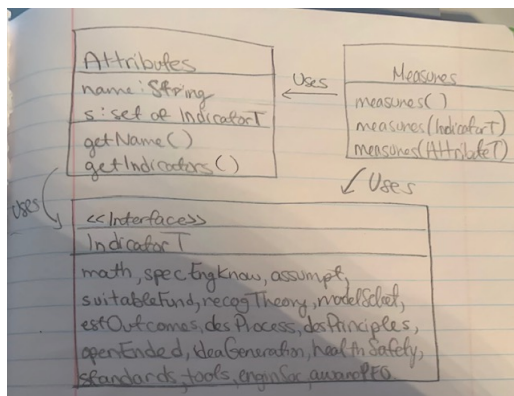 Attributes
name: String
s: set of IndicatorT
getName()
getIndicators()
Uses
Measures
measures()
measures(IndicatorT)
measures(AttributeT)
Uses
Uses
<<Interface>>
IndicatorT
math, specEngKnow, assumpt,
suitableFund, recogTheory, modelSelect,
estOutcomes, desProcess, desPrinciples,
openEnded, ideaGeneration, healthSafety,
standards, tools, engInSoc, awarePEO